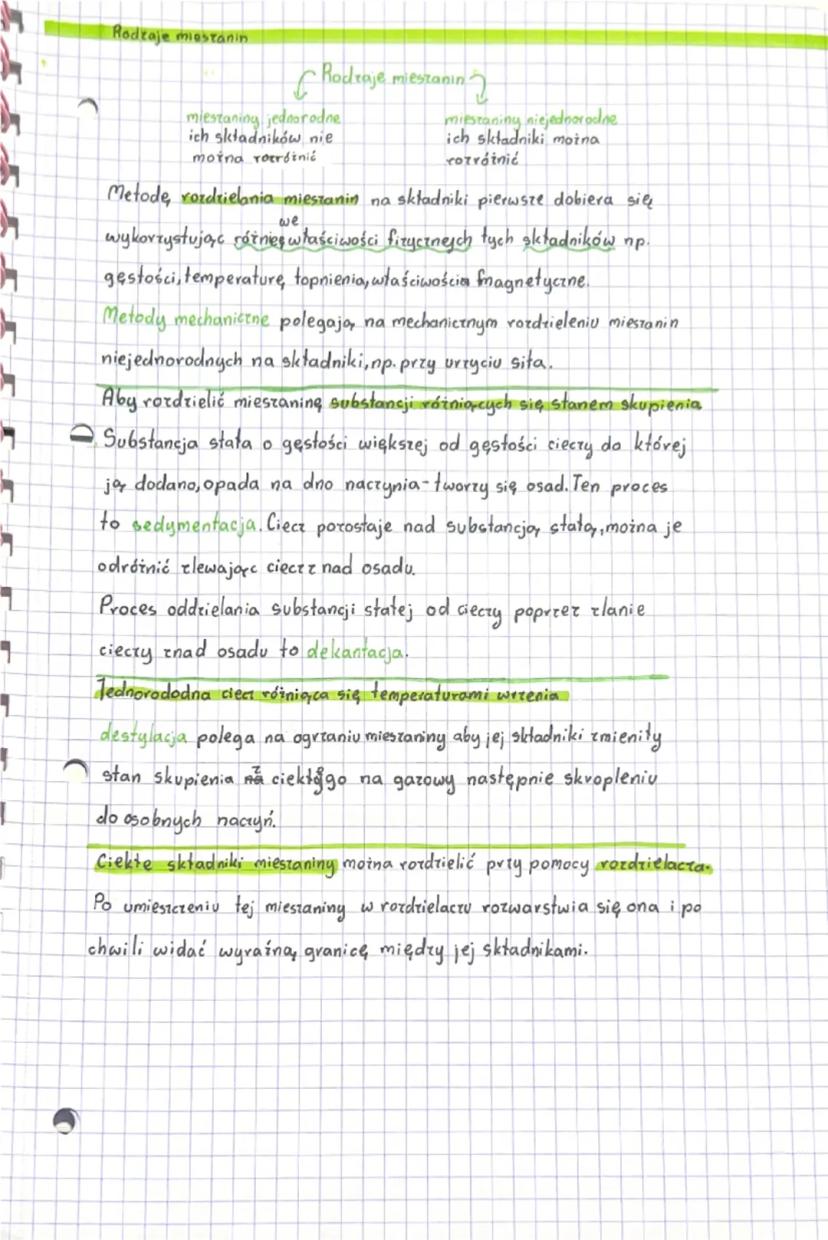 Rodzaje mieszanin
Rodzaje mieszanin
mieszaniny jednorodne
ich składników nie
można rozróżnić
mieszaniny niejednorodne
ich składniki można
rozróżnić
Metodę rozdzielania mieszanin na składniki pierwsze dobiera się
we
wykorzystując różnice właściwości fizycznych tych składników np.
gęstości, temperaturę topnienia, właściwościa magnetyczne.
Metody mechaniczne polegają na mechanicznym rozdzieleniu mieszanin
niejednorodnych na składniki, np. przy urzyciu sita.
Aby rozdzielić mieszaninę substancji różniących się stanem skupienia
Substancja stała o gęstości większej od gęstości cieczy do której
ją dodano, opada na dno naczynia - tworzy się osad. Ten proces
to sedymentacja. Ciecz pozostaje nad substancją stałą, można je
odróżnić zlewając ciecz z nad osadu.
Proces oddzielania substancji stałej od cieczy poprzez zlanie
cieczy znad osadu to dekantacja.
Jednorododna ciecz różniąca się temperaturami wrzenia
destylacja polega na ogrzaniu mieszaniny aby jej składniki zmieniły
stan skupienia z ciekłego na gazowy następnie skropleniu
do osobnych naczyń.
Ciekłe składniki mieszaniny można rozdzielić przy pomocy rozdzielacza.
Po umieszczeniu tej mieszaniny w rozdzielaczu rozwarstwia się ona i po
chwili widać wyraźną granicę między jej składnikami.